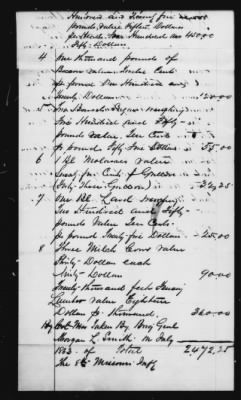 Hundred and Twenty five
pounds value Fifteen Dollars
per Hundred Four Hundred and 450.00
Fifty Dollars
4 One thousand pounds of
Bacon value Twelve Cents
pr pound One Hundred and
Twenty Dollars 120.00
5 Two Barrels Sugar weighing
Five Hundred and Fifty
pounds value Ten Cents
pr pound Fifty five Dollars 55.00
6 1 Bl Molasses value
Seventy five Cents pr Gallon
(Forty Three Gallons) 32,25
7 One Bl. Lard weighing
Two Hundred and Fifty
pounds value Ten Cents
pr pound Twenty five Dollars 25.00
8 Three Milch Cows value
Thirty Dollars each
Ninety Dollars 90.00
Twenty thousand feet
Lumber value Eighteen
Dollars pr Thousand 360.00
Was Taken By Brig Genl
Morgan L. Smith in July
1863. of Total 2472,25
The 8th Missouri Infty